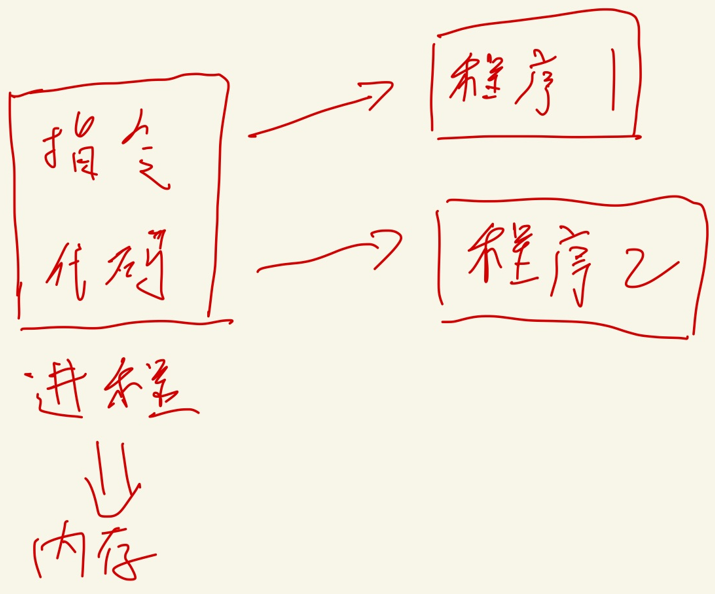 指令
代码
进程
内存
程序 1
程序 2